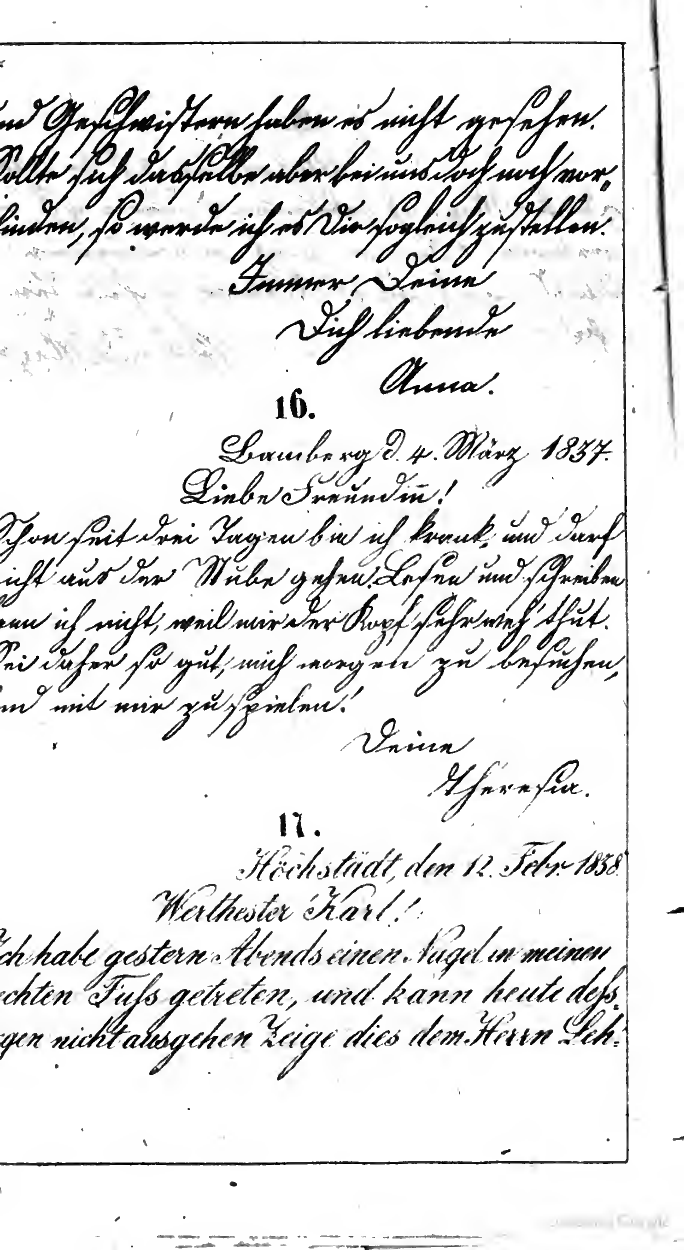 nd Geschwistern haben es nicht gesehen.
Sollte sich dasselbe aber bei uns doch noch vor-
finden, so werde ich es Dir sogleich zustellen.
Immer Deine
Dich liebende
Anna.
16.
Bamberg d. 4. März 1837.
Liebe Freundin̄!
Schon seit drei Tagen bin ich krank, und darf
icht aus der Stube gehen. Lesen und schreiben
ann ich nicht, weil mir der Kopf sehr weh thut.
Sei daher so gut, mich morgen zu besuchen,
nd mit mir zu spielen!
Deine
Theresia.
17.
Höchstädt, den 12. Febr. 1838.
Werthester Karl!
Ich habe gestern Abends einen Nagel in meinen
echten Fuſs getreten, und kann heute deſs-
gen nicht ausgehen Zeige dies dem Herrn Leh-
Google